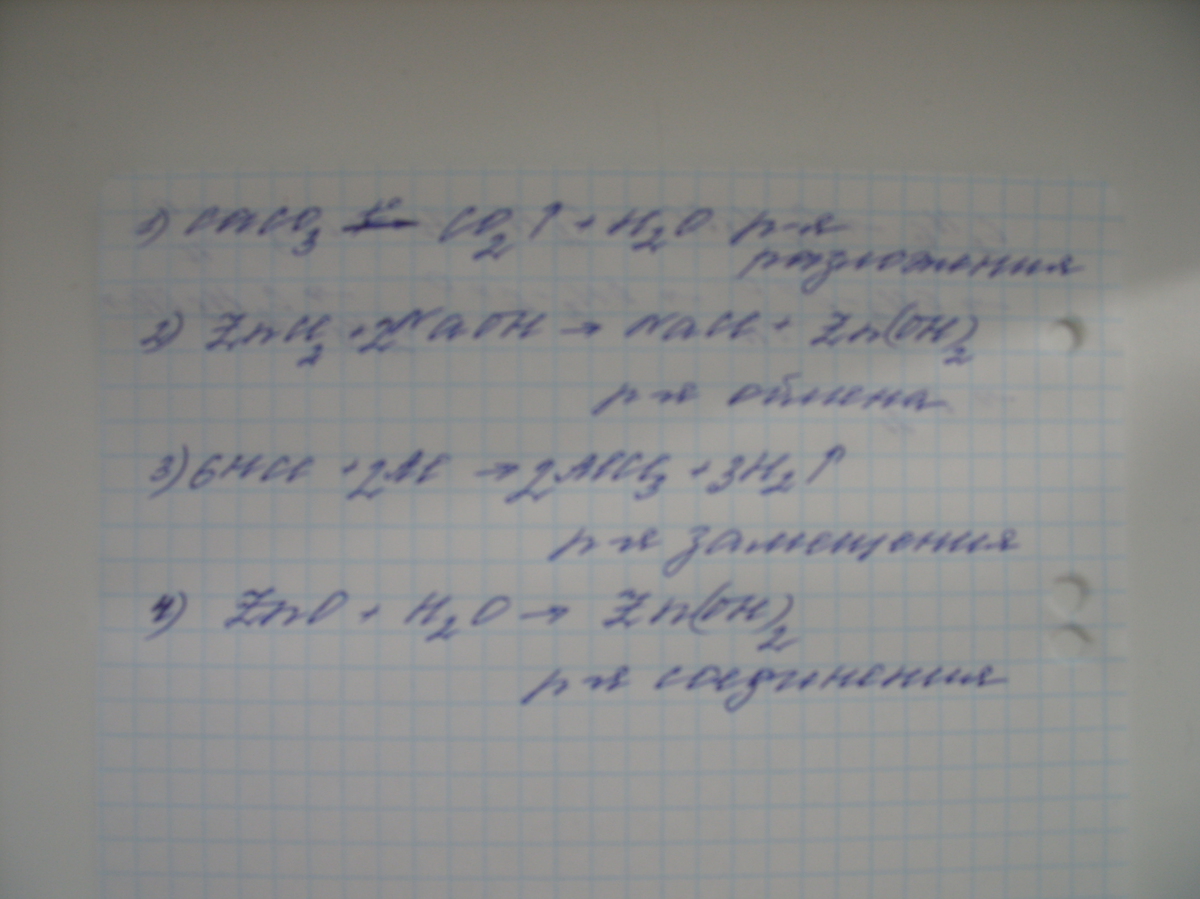 1) CaCO₃ t° → CO₂↑ + H₂O р-я
разложения
2) ZnCl₂ + 2NaOH → NaCl + Zn(OH)₂
р-я обмена
3) 6HCl + 2Al → 2AlCl₃ + 3H₂↑
р-я замещения
4) ZnO + H₂O → Zn(OH)₂
р-я соединения